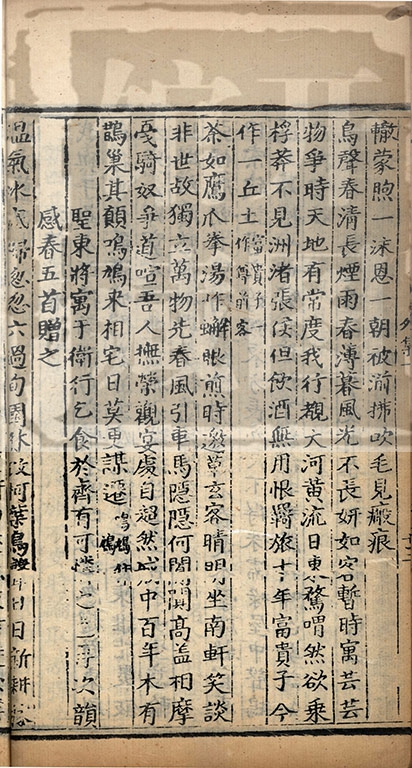 轍蒙煦一沫恩一朝被湔拂吹毛見瘢痕
鳥聲春清長煙雨春薄暮風光不長妍如客暫時寓芸芸
物爭時天地有常度我行覯大河黃流日東騖喟然欲乗
桴莽不見洲渚張侯但飲酒無用恨羇旅十年富貴子今
作一丘土作富貴子一作尊前客
茶如鷹爪拳湯作蠏眼煎時邀草玄客晴明坐南軒笑談
非世故獨立萬物先春風引車馬隱隱何闐闐高盖相摩
戞騎奴爭道喧吾人撫榮觀宴處自超然城中百年木有
鵲巢其顛鳴鳩來相宅日莫更謀遷鳴鳩
聖東將寓于衛行乞食於齊有可憐之 次韻
感春五首贈之
溫氣冰底歸忽忽六過旬園林 柯葉鳥 日日新